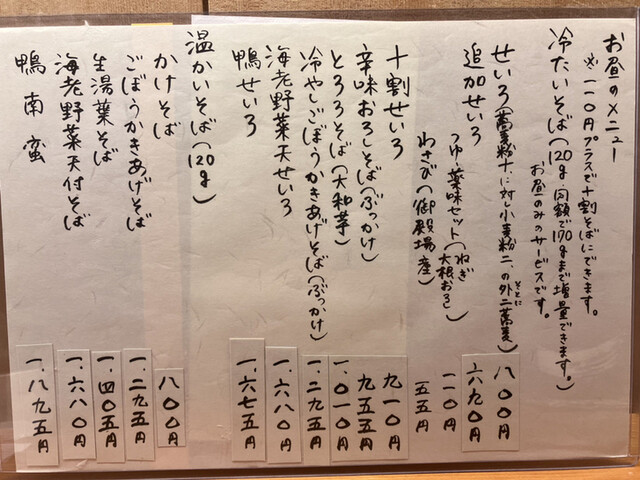 お昼のメニュー
※一一〇円プラスで十割そばにできます。
冷たいそば(120g・同額で170gまで増量できます。)
お昼のみのサービスです。
せいろ(蕎麦粉十、に対し小麦粉二、の外二蕎麦)八〇〇円
そとに
追加せいろ 六九〇円
つゆ・薬味セット(ねぎ 大根おろし) 一一〇円
わさび(御殿場産) 五五円
十割せいろ 九一〇円
辛味おろしそば(ぶっかけ) 九五五円
とろろそば(大和芋) 一、〇一〇円
冷やしごぼうかきあげそば(ぶっかけ) 一、二九五円
海老野菜天せいろ 一、六八〇円
鴨せいろ 一、六七五円
温かいそば(120g)
かけそば 八〇〇円
ごぼうかきあげそば 一、二九五円
生湯葉そば 一、四〇五円
海老野菜天付そば 一、六八〇円
鴨南蛮 一、八九五円